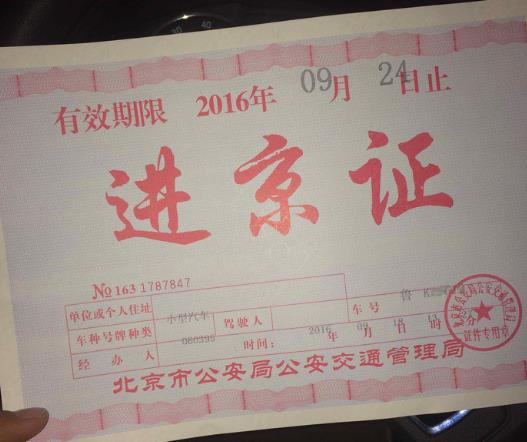 有效期限 2016年 09月 24日止
进京证
№ 163 1787847
单位或个人住址
车种号牌种类 小型汽车 驾驶人 车号 鲁 K
经办人 060395 时间: 2016年 09月 18日 分
北京市公安局公安交通管理局
证件专用章